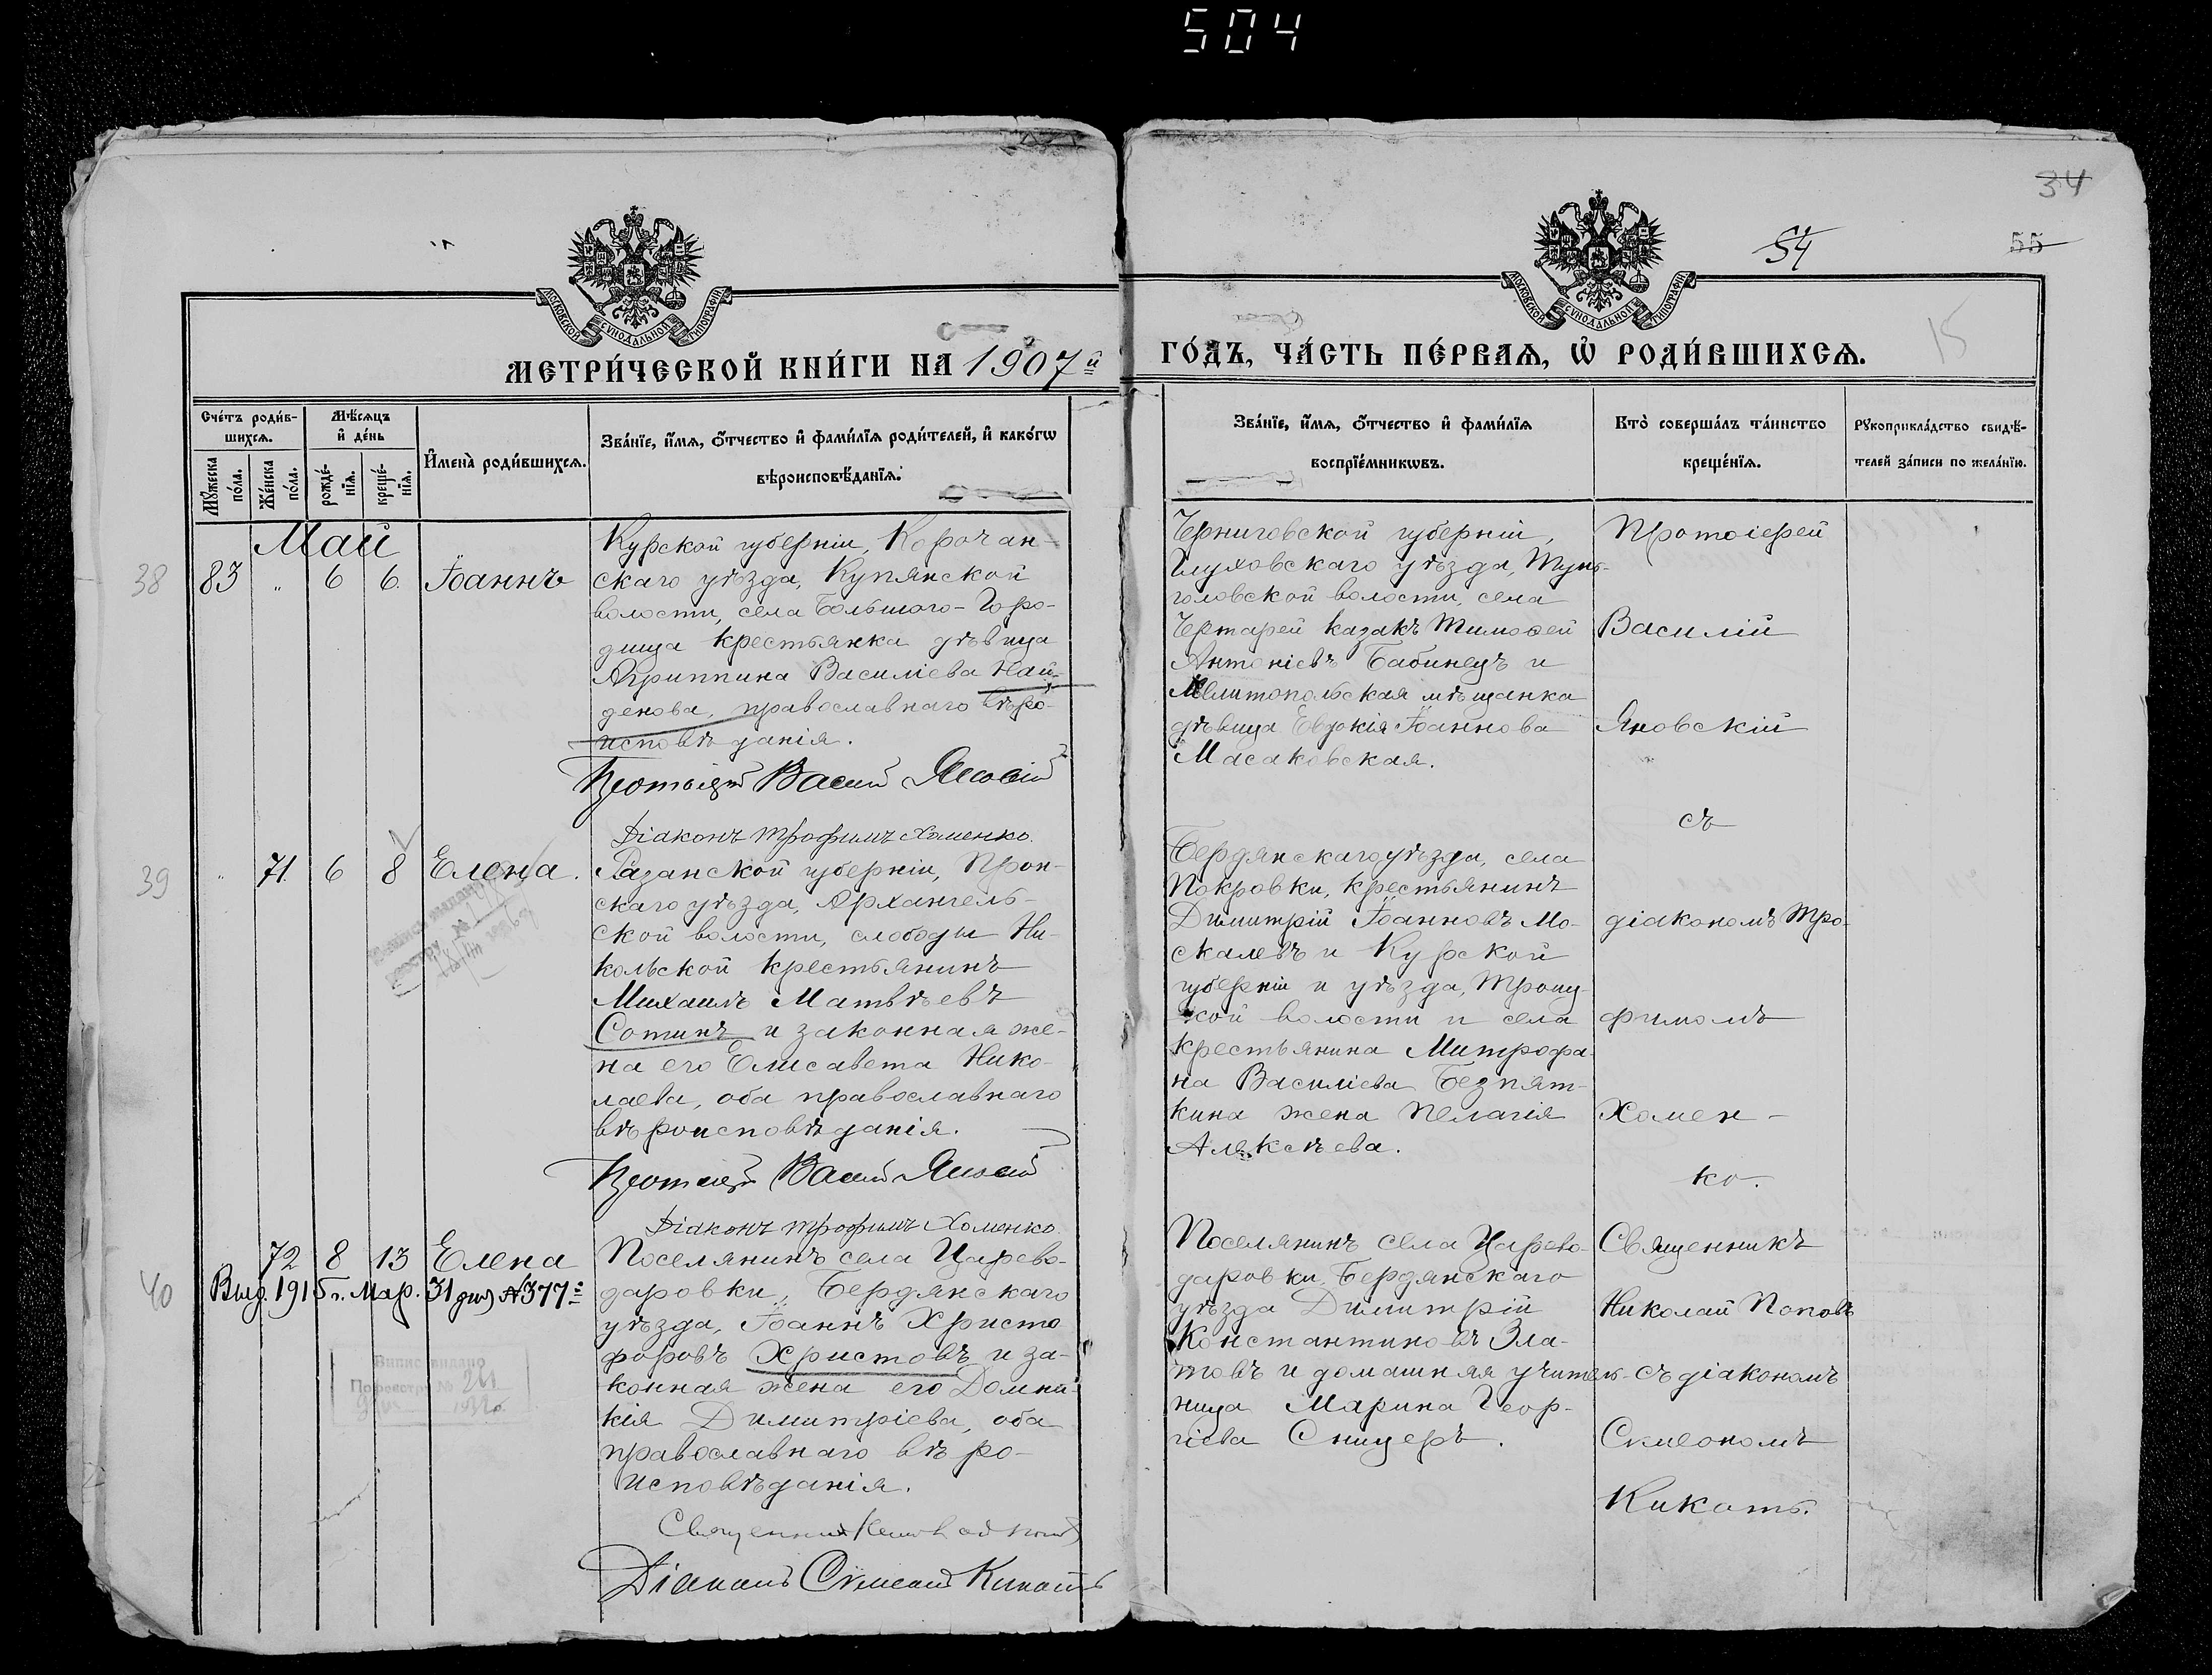 504
34
54
55
15
МОСКОВСКОЙ СѴНОДАЛЬНОЙ ТИПОГРАФІИ
МОСКОВСКОЙ СѴНОДАЛЬНОЙ ТИПОГРАФІИ
МЕТРИ́ЧЕСКОЙ КНИ́ГИ НА 1907й
ГО́ДЪ, ЧА́СТЬ ПЕ́РВАЯ, Ѽ РОДИ́ВШИХСЯ.
Сче́тъ роди́в-
шихся.
Мѣ́сяцъ
и҆ де́нь
Мꙋ́жеска
по́ла.
Же́нска
по́ла.
рожде́-
нїя.
креще́-
нїя.
И҆мена̀ роди́вшихся.
Зва́нїе, и҆́мя, ѻ҆́тчество и҆ фами́лїя роди́телей, и҆ како́гѡ
вѣроисповѣ́данїя.
Зва́нїе, и҆́мя, ѻ҆́тчество и҆ фами́лїя
воспрїе́мникѡвъ.
Кто̀ соверша́лъ та́инство
креще́нїя.
Рꙋкоприкла́дство свидѣ́-
телей за́писи по жела́нїю.
Май
38
83 „ 6 6. Іоаннъ
Курской губерніи, Корочан-
скаго уѣзда, Купянской
волости, села Большого-Горо-
дища крестьянка дѣвица
Агриппина Василіева Най-
денова, православнаго вѣро-
исповѣданія.
Протоіерей Василий Яновскій
Діаконъ Трофимъ Хоменко.
Черниговской губерніи,
Глуховскаго уѣзда, Тули-
головской волости, села
Чертарей казакъ Тимоѳей
Антоніевъ Бабинецъ и
Мелитопольская мѣщанка
дѣвица Евдокія Іоаннова
Масаковская.
Протоіерей
Василій
Яновскій
съ
39
„ 71. 6 8 Елена.
Рязанской губерніи, Прон-
скаго уѣзда, Архангель-
ской волости, слободы Ни-
кольской крестьянинъ
Михаилъ Матвѣевъ
Сотинъ и законная же-
на его Елисавета Нико-
лаева, оба православнаго
вѣроисповѣданія.
Протоіерей Василий Яновскій
Діаконъ Трофимъ Хоменко.
Бердянскаго уѣзда, села
Покровки, крестьянинъ
Димитрій Іоанновъ Мо-
скалевъ и Курской
губерніи и уѣзда, Троиц-
кой волости и села
крестьянина Митрофа-
на Василіева Безпят-
кина жена Пелагія
Алексѣева.
діакономъ Тро-
фимомъ
Хомен-
ко.
40
72 8 13 Елена
Выд. 1915 г. Мар. 31 дня №377
Поселянинъ села Царево-
даровки, Бердянскаго
уѣзда, Іоаннъ Христо
форовъ Христовъ и за-
конная жена его Домни-
кія Димитріева, оба
православнаго вѣро-
исповѣданія.
Діаконъ Сѵмеонъ Кикоть
Поселянинъ села Царево-
даровки, Бердянскаго
уѣзда Димитрій
Константиновъ Зла-
товъ и домашняя учитель-
ница Марина Геор-
гіева Сницеръ.
Священникъ
Николай Поповъ
съ діакономъ
Сѵмеономъ
Кикоть.